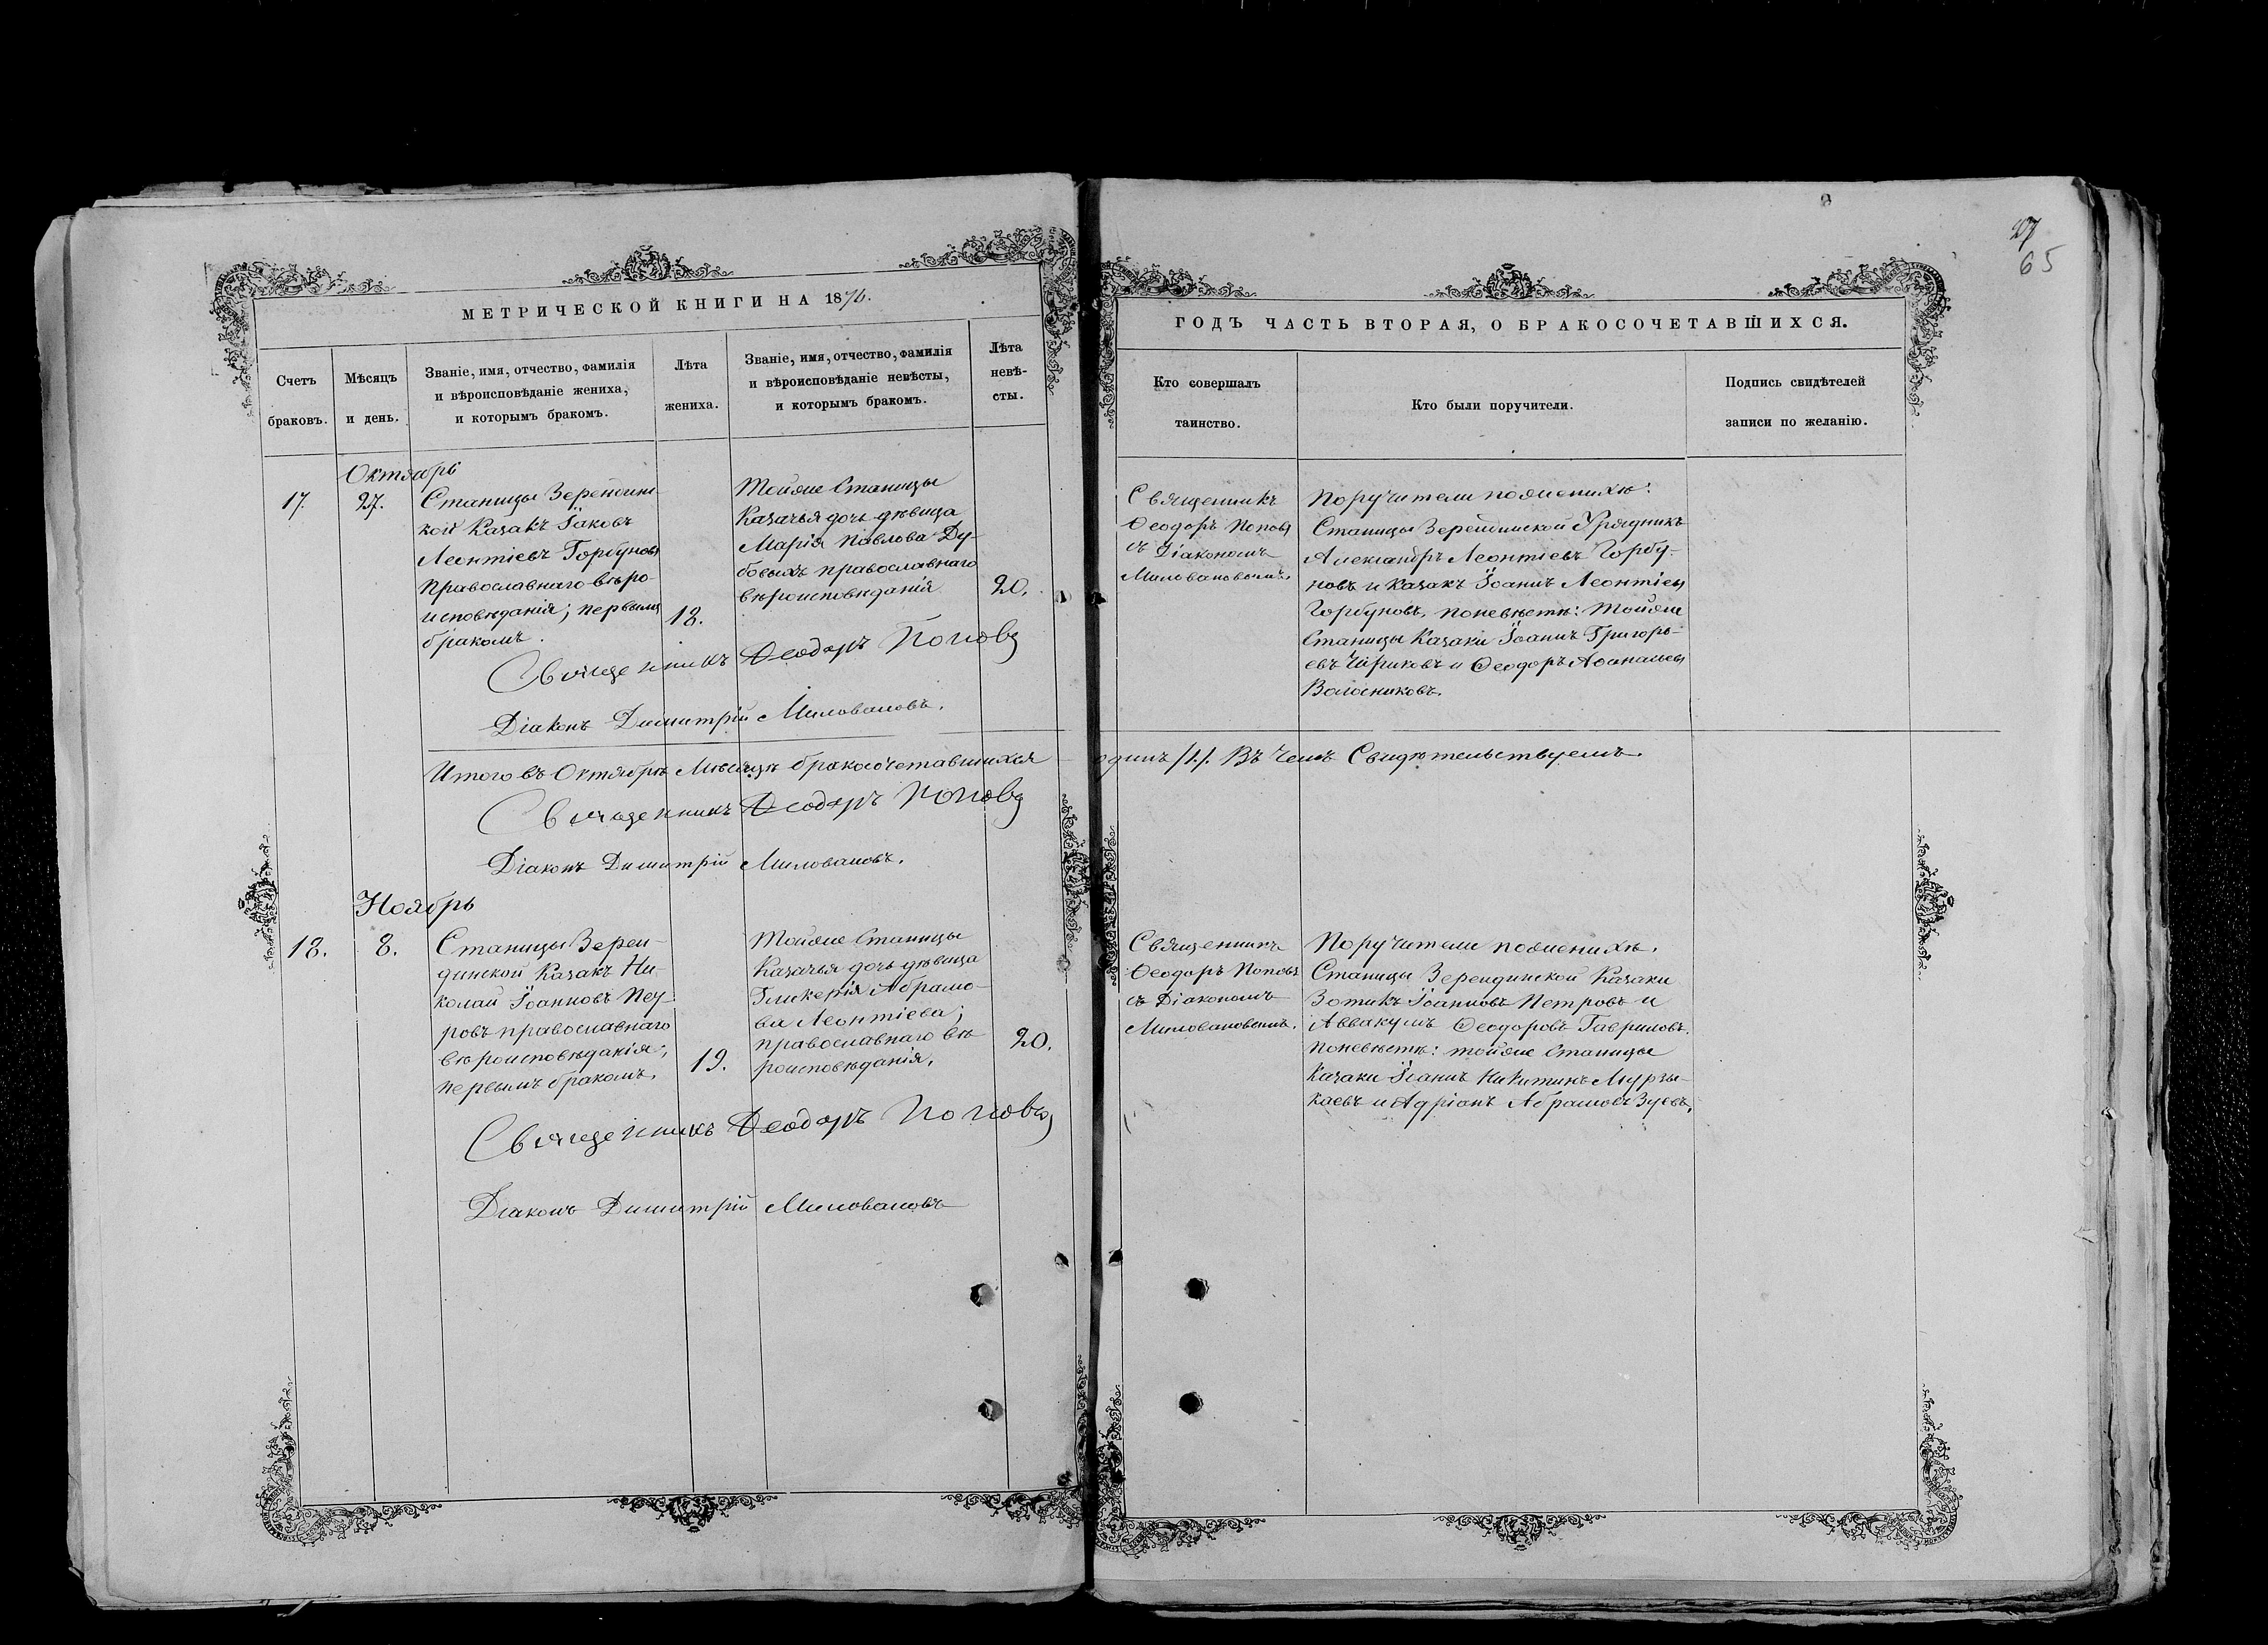 27
65
МЕТРИЧЕСКОЙ КНИГИ НА 1876.
ГОДЪ ЧАСТЬ ВТОРАЯ, О БРАКОСОЧЕТАВШИХСЯ.
Счетъ
браковъ.
Мѣсяцъ
и день.
Званіе, имя, отчество, фамилія
и вѣроисповѣданіе жениха,
и которымъ бракомъ.
Лѣта
жениха.
Званіе, имя, отчество, фамилія
и вѣроисповѣданіе невѣсты,
и которымъ бракомъ.
Лѣта
невѣ-
сты.
Кто совершалъ
таинство.
Кто были поручители.
Подпись свидѣтелей
записи по желанію.
Октябрь
17.
27.
Станицы Зерендинс
кой Казакъ Іаковъ
Леонтіевъ Горбуновъ
Православнаго вѣро-
исповѣданія; первымъ
бракомъ.
18.
Тойже Станицы
Казачья дочь дѣвица
Марія Павлова Ду-
бовыхъ православнаго
вѣроисповѣданія
20.
Священникъ
Ѳеодоръ Поповъ
съ Діакономъ
Миловановымъ.
Поручители пожениху:
Станицы Зерендинской Урядникъ
Александръ Леонтіевъ Горбу-
новъ и Казакъ Іоаннъ Леонтіевъ
Горбуновъ, поневѣстѣ: Тойже
Станицы Казаки Іоаннъ Григорь-
евъ Чириковъ и Ѳеодоръ Аѳанасьевъ
Волосниковъ.
Священникъ Ѳеодоръ Поповъ
Діаконъ Димитрій Миловановъ.
Итого въ Октябрѣ Мѣсяцѣ бракосочетавшихся одинъ /1/. Въ чемъ Свидѣтельствуемъ.
Священникъ Ѳеодоръ Поповъ
Діаконъ Димитрій Миловановъ.
Ноябрь
18.
8.
Станицы Зерен-
динской Казакъ Ни-
колай Іоанновъ Пет-
ровъ православнаго
вѣроисповѣданія;
первымъ бракомъ.
19.
Тойже Станицы
Казачья дочь дѣвица
Гликерія Абрамо-
ва Леонтіева;
православнаго вѣ
роисповѣданія.
20.
Священникъ
Ѳеодоръ Поповъ
съ Діакономъ
Миловановымъ.
Поручители пожениху.
Станицы Зерендинской Казаки
Зотикъ Іоанновъ Петровъ и
Аввакумъ Ѳеодоровъ Гавриловъ.
поневѣстѣ: тойже Станицы
Казаки Іоаннъ Никитинъ Мурзы-
каевъ и Адріанъ Абрамовъ Зуевъ.
Священникъ Ѳеодоръ Поповъ
Діаконъ Димитрій Миловановъ